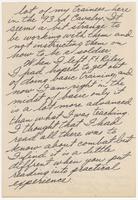 lot of my trainees here
in the 43rd Cavalry. It
seems a bit strange to
be working with them and
not instructing them on
how to be a soldier.
When I left Ft. Riley
I first hoped to get out
of doing basic training and
now I am right in the
midst of it but only it
is a lot more advanced
than what I was teaching.
I thought that I had
read all there was to
know about combat but
I find it is a bit
different when you put
reading into practical
experience.